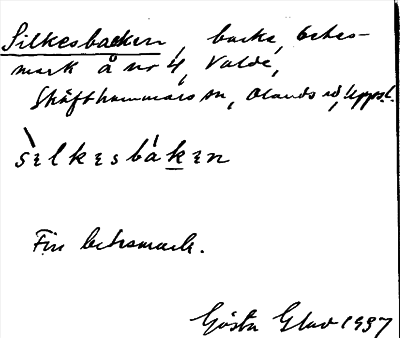 Silkesbacken, backe, betes-
mark å nr 4, Valde,
Skäfthammars sn, Olands hd, Uppsl.
sìlkesbáken
Fin betesmark.
Gösta Glad 1937